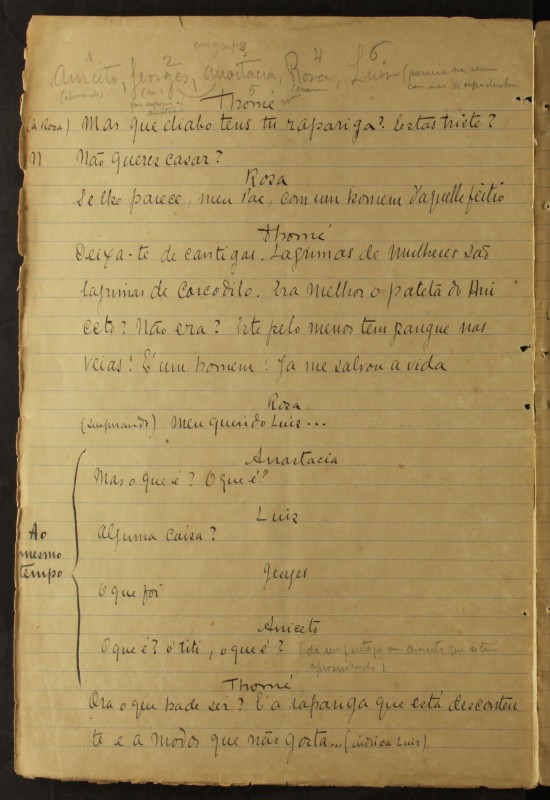 1 2 3 4 6
Aniceto, Georges, Anastacia, Rosa, Luiz
5
Thomé
(à Rosa) Mas que diabo tens tu rapariga? Estas triste?
Não queres casar?
Rosa
Se lhe parece, meu Pae, com um homem d'aquelle feitio
Thomé
Deixa-te de cantigas. Lagrimas de mulheres são
lagrimas de Corcodilo. Era melhor o pateta do Ani
ceto? Não era? Este pelo menos tem sangue nas
veias! É um homem! Ja me salvou a vida
Rosa
(suspirando) Meu querido Luiz...
Anastacia
Mas o que é? O que é?
Luiz
Alguma coisa?
Georges
O que foi
Ao
mesmo
tempo
Aniceto
O que é? ó titi, o que é?
Thomé
Ora o que hade ser? É a rapariga que está desconten
te e a modos que não gosta... (indica Luiz)